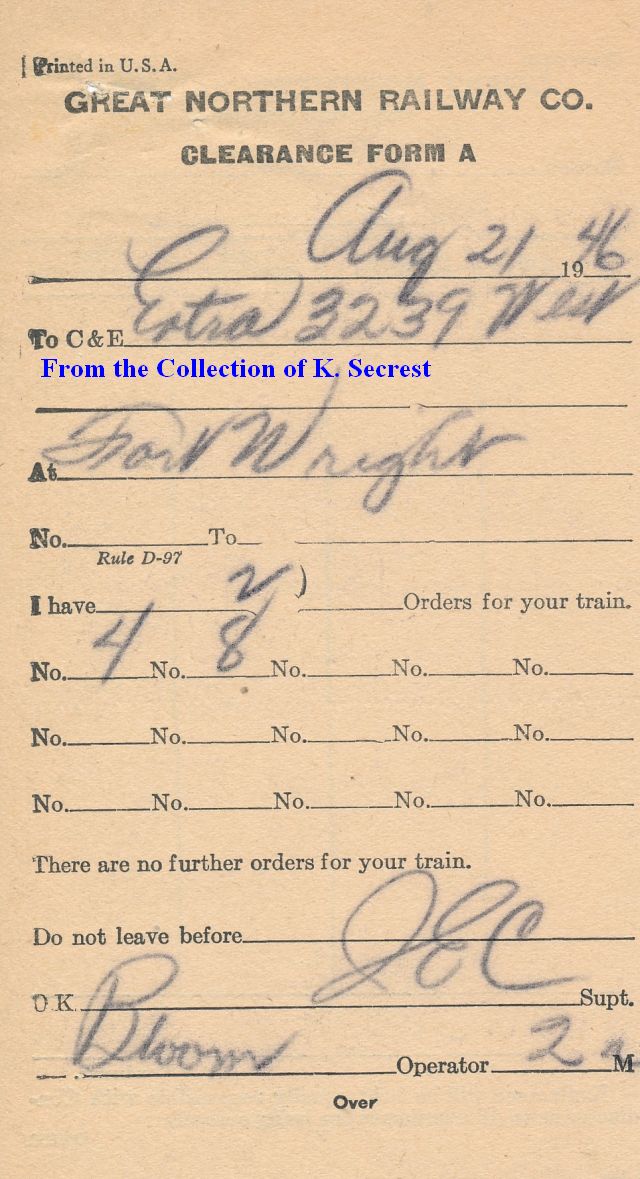 Printed in U.S.A.
GREAT NORTHERN RAILWAY CO.
CLEARANCE FORM A
Aug 21 1946
To C & E Extra 3239 West
From the Collection of K. Secrest
At Fort Wright
No. To
Rule D-97
I have 2 Orders for your train.
No. 4 No. 8 No. No. No.
No. No. No. No. No.
No. No. No. No. No.
There are no further orders for your train.
Do not leave before
OK JEC Supt.
Bloom Operator 2 a M
Over